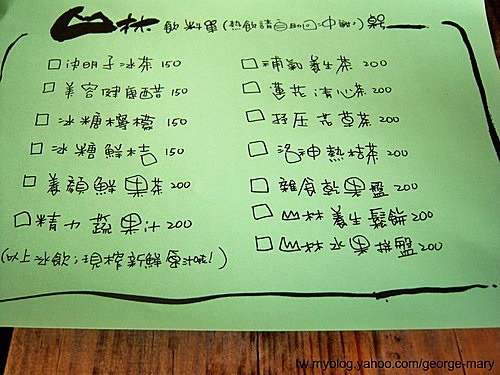 山林飲料單(熱飲請自助回沖喔!)
□決明子冰茶 150
□美容健康醋 150
□冰糖檸檬 150
□冰糖鮮桔 150
□養顏鮮果茶 200
□精力蔬果汁 200
(以上冰飲;現榨新鮮原汁呢!)
□補氣養生茶 200
□蓮花清心茶 200
□紓壓花草茶 200
□洛神熱桔茶 200
□雜食乾果盤 200
□山林養生鬆餅 200
□山林水果拼盤 200
tw.myblog.yahoo.com/george-mary